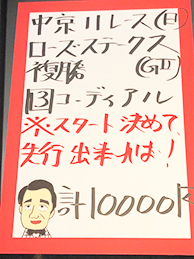 中京11レース(日)
ローズ・ステークス
複勝 (GⅡ)
13コーディアル
※スタート決めて、
先行出来れば!
計10000円